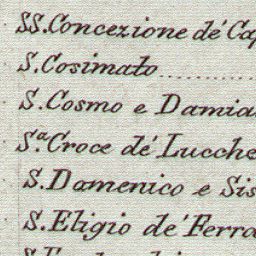 SS. Concezione de' Ca
S. Cosimato
S. Cosmo e Damia
S.ª Croce de' Lucche
S. Domenico e Sis
S. Eligio de' Ferra